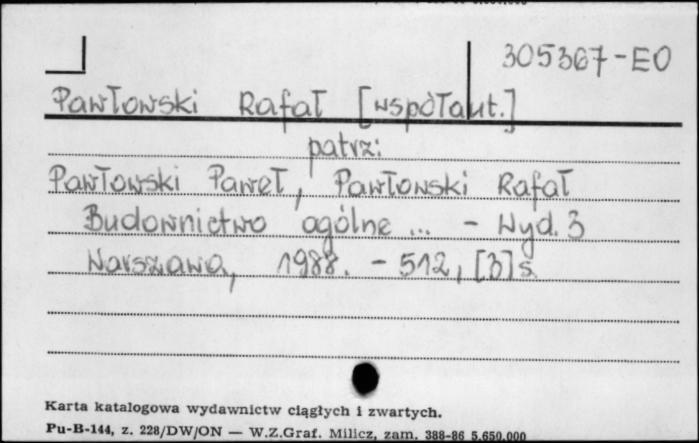 305367-EO
Pawłowski Rafał [współaut.]
patrz:
Pawłowski Paweł, Pawłowski Rafał
Budownictwo ogólne ... - Wyd. 3
Warszawa, 1988. - 512, [3] s.
Karta katalogowa wydawnictw ciągłych i zwartych.
Pu-B-144, z. 228/DW/ON — W.Z.Graf. Milicz, zam. 388-86 5.650.000